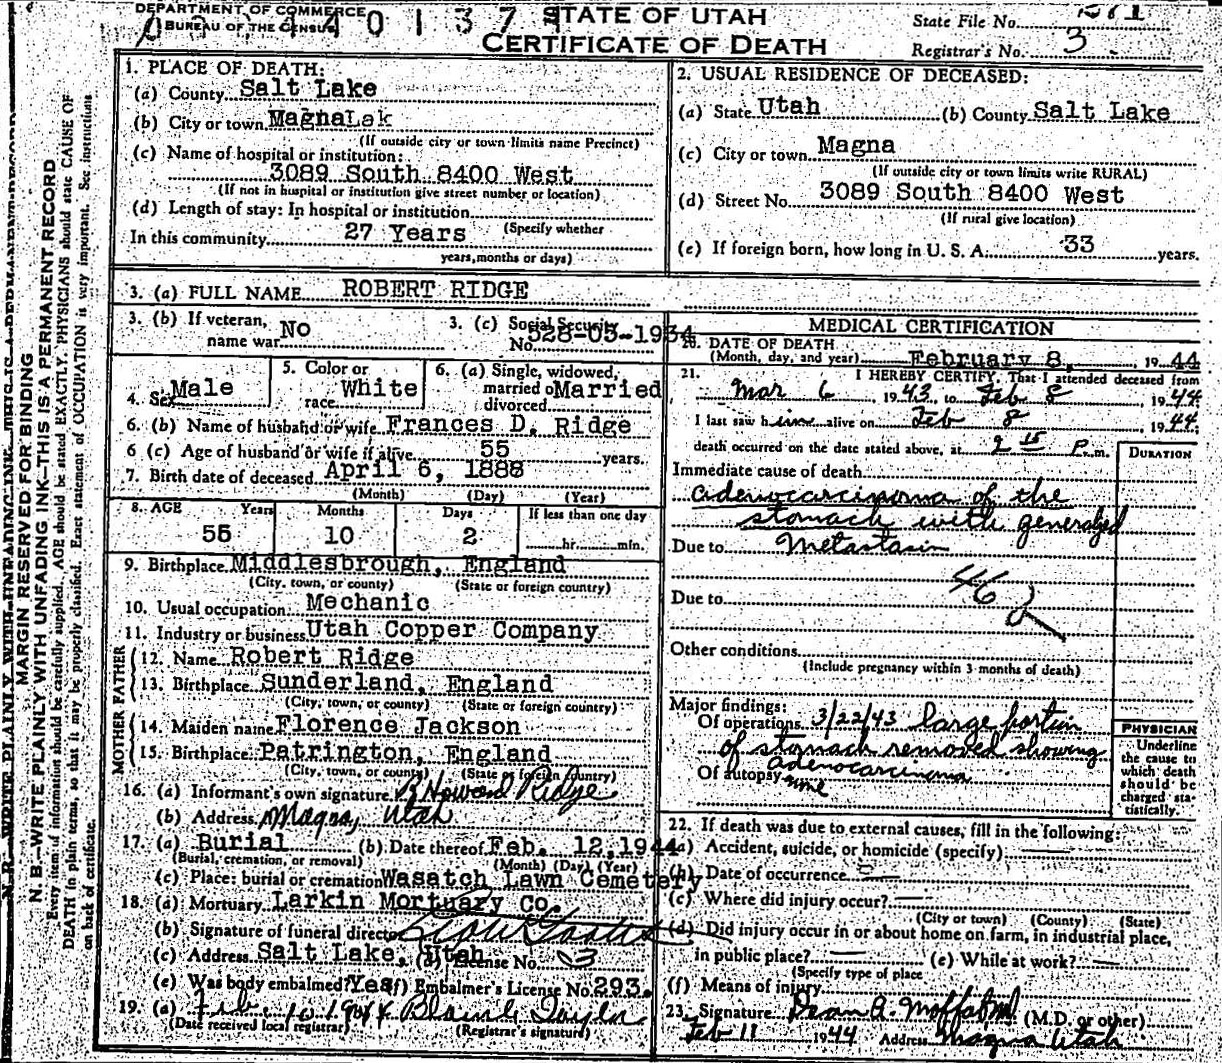 DEPARTMENT OF COMMERCE
BUREAU OF THE CENSUS
STATE OF UTAH
CERTIFICATE OF DEATH
State File No.
Registrar's No. 3
N. B.—WRITE PLAINLY WITH UNFADING INK—THIS IS A PERMANENT RECORD
MARGIN RESERVED FOR BINDING
Every item of information should be carefully supplied. AGE should be stated EXACTLY. PHYSICIANS should state CAUSE OF
DEATH in plain terms, so that it may be properly classified. Exact statement of OCCUPATION is very important. See instructions
on back of certificate.
1. PLACE OF DEATH:
(a) County Salt Lake
(b) City or town Magna
(If outside city or town limits name Precinct)
(c) Name of hospital or institution:
3089 South 8400 West
(If not in hospital or institution give street number or location)
(d) Length of stay: In hospital or institution
(Specify whether
In this community 27 Years
years, months or days)
2. USUAL RESIDENCE OF DECEASED:
(a) State Utah (b) County Salt Lake
(c) City or town Magna
(If outside city or town limits write RURAL)
(d) Street No. 3089 South 8400 West
(If rural give location)
(e) If foreign born, how long in U. S. A. 33 years.
3. (a) FULL NAME ROBERT RIDGE
3. (b) If veteran, name war No
3. (c) Social Security No. 528-05-1934
4. Sex Male
5. Color or race White
6. (a) Single, widowed, married or divorced Married
6. (b) Name of husband or wife Frances D. Ridge
6 (c) Age of husband or wife if alive 55 years.
7. Birth date of deceased April 6, 1888
(Month) (Day) (Year)
8. AGE Years Months Days If less than one day
55 10 2 hr. min.
9. Birthplace Middlesbrough, England
(City, town, or county) (State or foreign country)
10. Usual occupation Mechanic
11. Industry or business Utah Copper Company
FATHER
12. Name Robert Ridge
13. Birthplace Sunderland, England
(City, town, or county) (State or foreign country)
MOTHER
14. Maiden name Florence Jackson
15. Birthplace Patrington, England
(City, town, or county) (State or foreign country)
16. (a) Informant's own signature R Howard Ridge
(b) Address Magna, Utah
17. (a) Burial (b) Date thereof Feb. 12, 1944
(Burial, cremation, or removal) (Month) (Day) (Year)
(c) Place: burial or cremation Wasatch Lawn Cemetery
18. (a) Mortuary Larkin Mortuary Co.
(b) Signature of funeral director
(c) Address Salt Lake, Utah (d) License No. 3
(e) Was body embalmed? Yes (f) Embalmer's License No. 293.
19. (a) Feb. 10 1944
(Date received local registrar) (Registrar's signature)
MEDICAL CERTIFICATION
20. DATE OF DEATH
(Month, day, and year) February 8, 1944
21. I HEREBY CERTIFY, That I attended deceased from
Mar 6 1943, to Feb 8 1944
I last saw him alive on Feb 8 1944.
death occurred on the date stated above, at 2 15 P. m.
DURATION
Immediate cause of death
adenocarcinoma of the
stomach with generalized
Due to Metastasis
46
Due to
Other conditions
(Include pregnancy within 3 months of death)
Major findings:
Of operations 3/22/43 large portion
of stomach removed showing
adenocarcinoma
Of autopsy none
PHYSICIAN
Underline
the cause to
which death
should be
charged sta-
tistically.
22. If death was due to external causes, fill in the following:
(a) Accident, suicide, or homicide (specify)
(b) Date of occurrence
(c) Where did injury occur?
(City or town) (County) (State)
(d) Did injury occur in or about home on farm, in industrial place,
in public place? (e) While at work?
(Specify type of place
(f) Means of injury
23. Signature Dean A. Moffat MD. (M.D. or other)
Feb 11 1944 Address Magna Utah